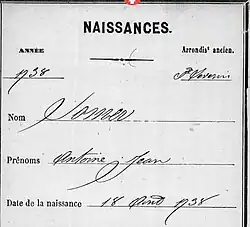 NAISSANCES.
ANNÉE Arrondist ancien.
1738 St Severin
Nom Somer
Prénoms Antoine Jean
Date de la naissance 18 Août 1738